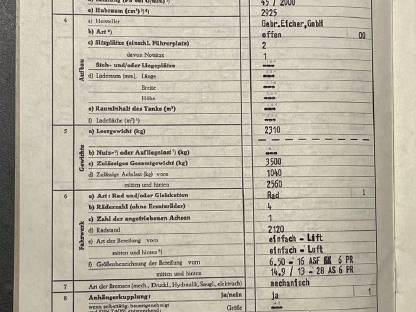 45 / 2000
e) Hubraum (cm³) ³)⁴) 2925
4 Aufbau a) Hersteller Gebr.Eicher,GmbH
b) Art ⁴) offen 00
c) Sitzplätze (einschl. Führerplatz) 2
davon Notsitze 1
Steh- und/oder Liegeplätze ---
d) Laderaum (mm) Länge ---
Breite ---
Höhe ---
e) Rauminhalt des Tanks (m³) ---
f) Ladefläche (m²) ---
5 Gewichte a) Leergewicht (kg) 2310
b) Nutz- oder Aufliegelast (kg) ---
c) Zulässiges Gesamtgewicht (kg) 3500
d) Zulässige Achslast (kg) vorn 1040
mitten und hinten 2560
6 Fahrwerk a) Art: Rad und/oder Gleisketten Rad 1
b) Räderzahl (ohne Ersatzräder) 4
c) Zahl der angetriebenen Achsen 1
d) Radstand 2120
e) Art der Bereifung vorn einfach - Luft
mitten und hinten einfach - Luft
f) Größenbezeichnung der Bereifung vorn 6.50 - 16 ASF 6 PR
mitten und hinten 14.9 / 13 - 28 AS 6 PR
7 Art der Bremsen (mech., Druckl., Hydraulik, Saugl., elektrisch) mechanisch
8 Anhängerkupplung: ja/nein ja 1
Größe